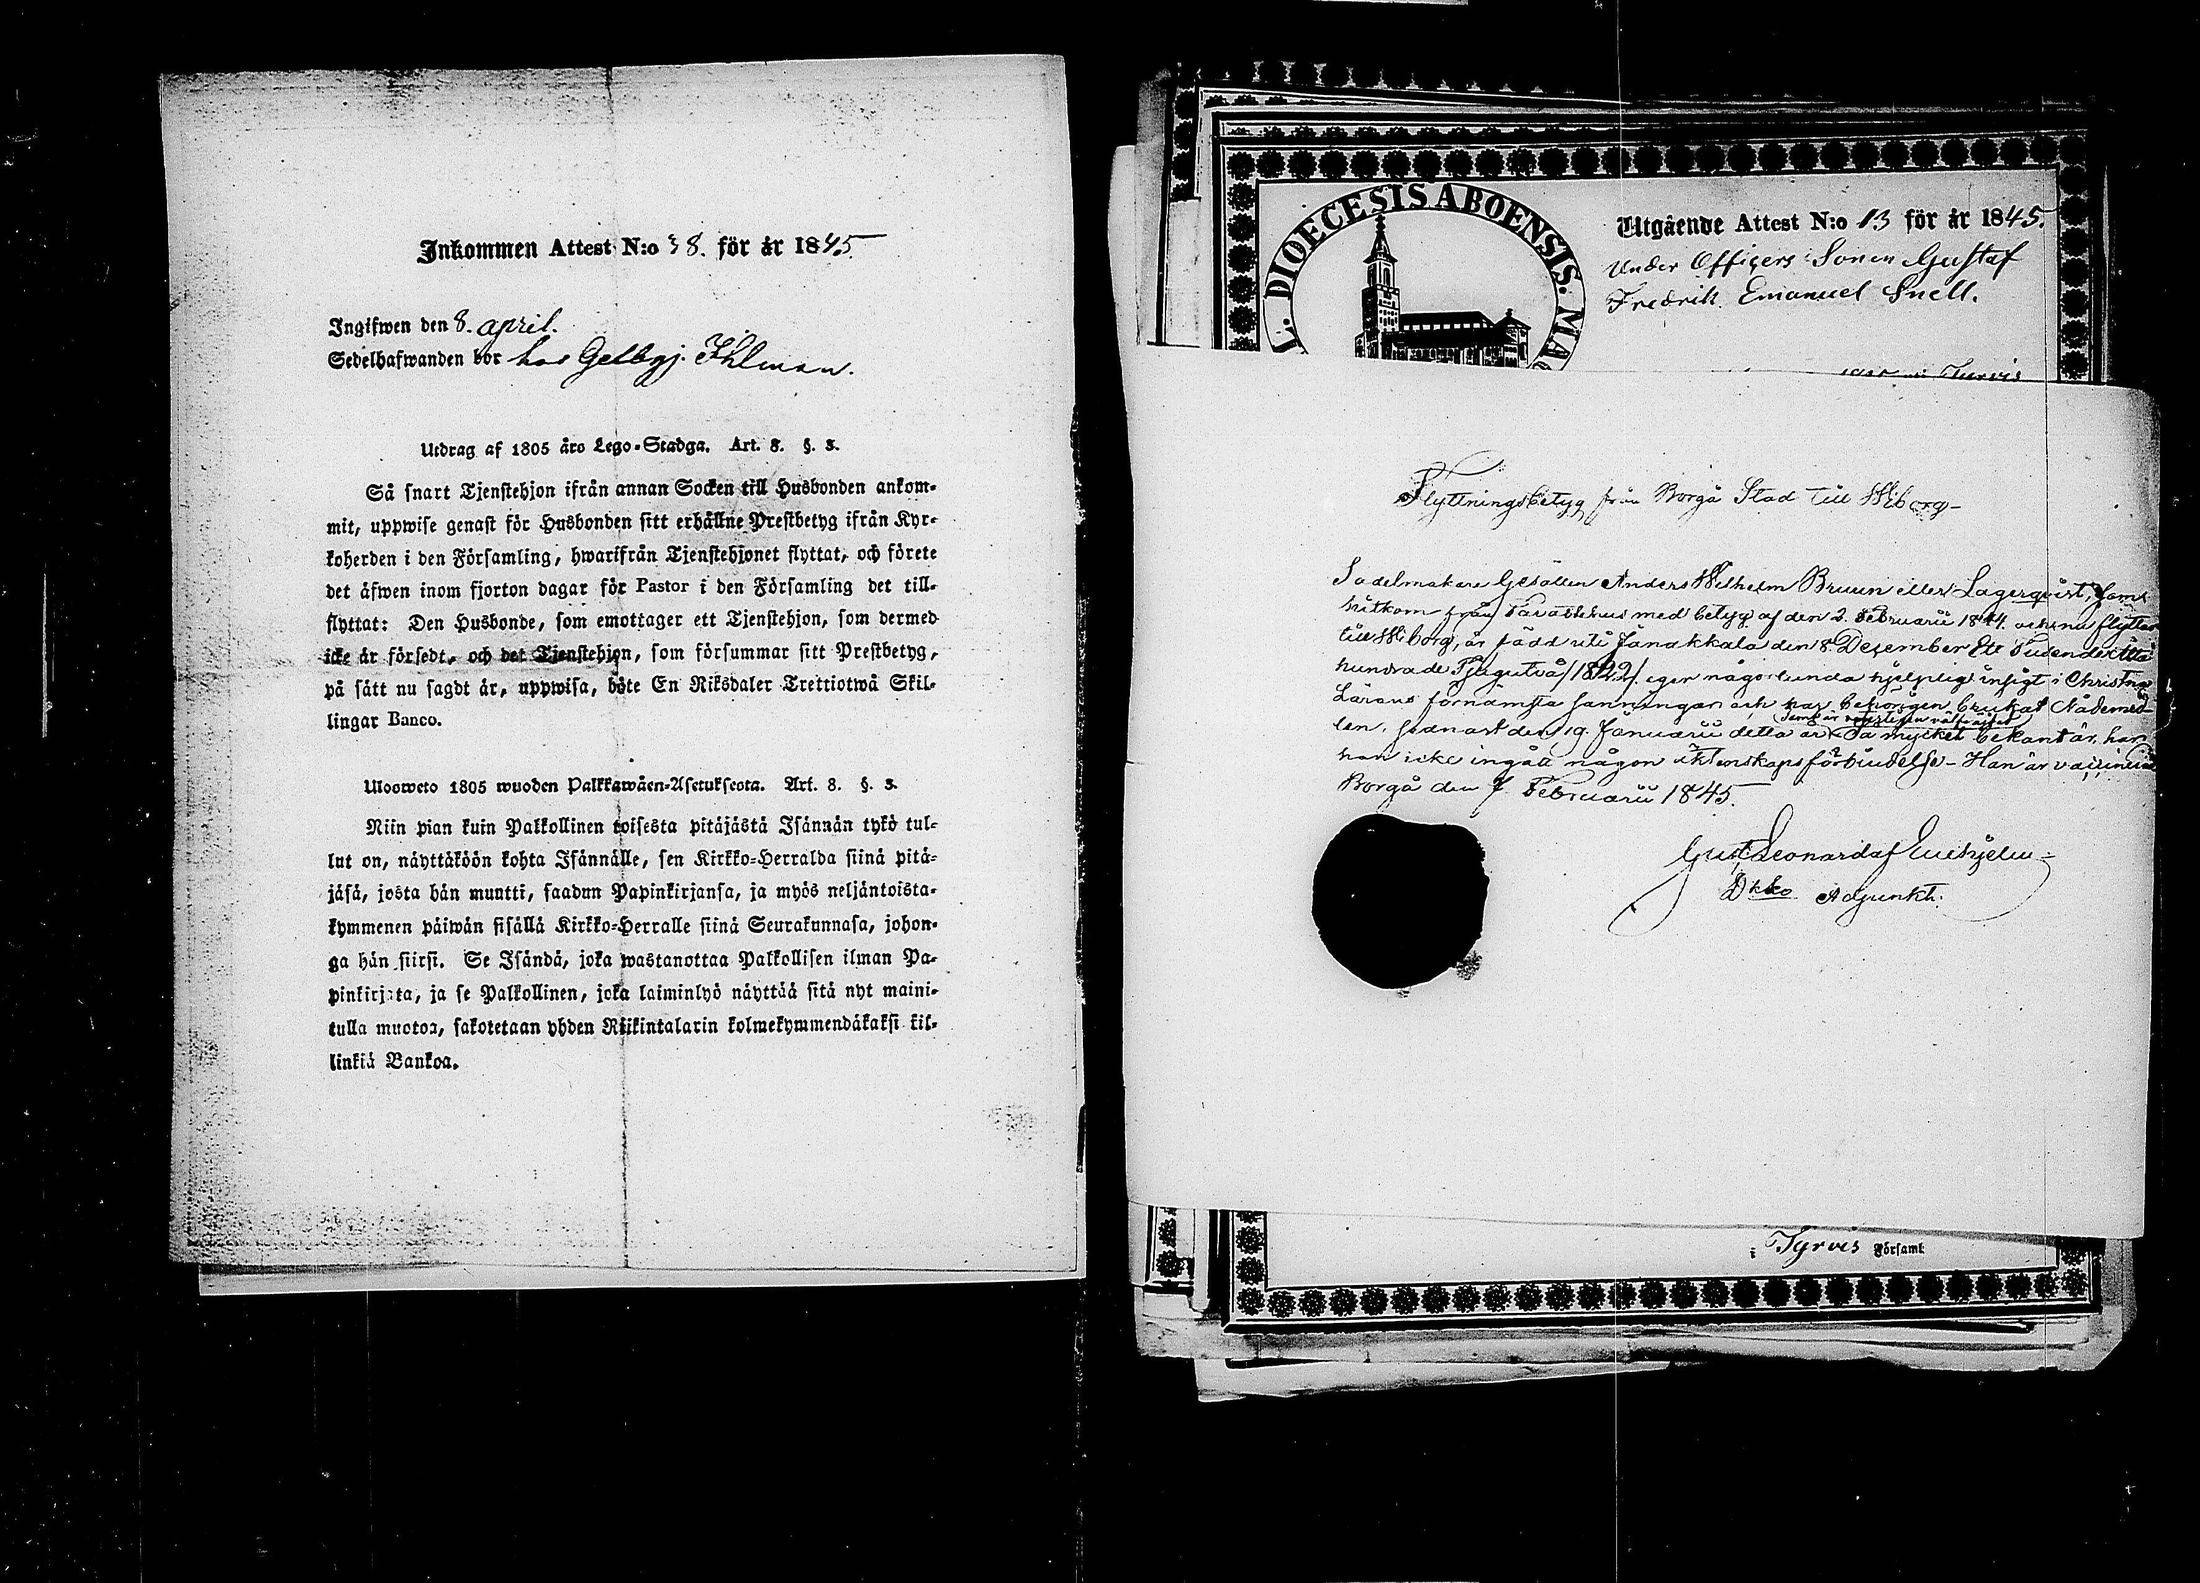 Inkommen Attest N:o 38. för år 1845.
Ingifwen den 8. april.
Sedelhafwanden bor hos Gelbgj. Ihlman.
Utdrag af 1805 års Lego-Stadga. Art. 8. §. 3.
Så snart Tjenstehjon ifrån annan Socken till Husbonden ankom-
mit, uppwise genast för Husbonden sitt erhållne Prestbetyg ifrån Kyr-
koherden i den Församling, hwarifrån Tjenstehjonet flyttat, och förete
det äfwen inom fjorton dagar för Pastor i den Församling det till-
flyttat: Den Husbonde, som emottager ett Tjenstehjon, som dermed
icke är försedt, och det Tjenstehjon, som försummar sitt Prestbetyg,
på sätt nu sagdt är, uppwisa, böte En Riksdaler Trettiotwå Skil-
lingar Banco.
Ulosweto 1805 wuoden Palkkawäen-Asetuksesta. Art. 8. §. 3.
Niin pian kuin Palkollinen toisesta pitäjästä Isännän tykö tul-
lut on, näyttäköön kohta Isännälle, sen Kirkko-Herralda siinä pitä-
jäsä, josta hän muutti, saadun Papinkirjansa, ja myös neljäntoista-
kymmenen päiwän sisällä Kirkko-Herralle siinä Seurakunnasa, johon-
ga hän siirsi. Se Isändä, joka wastanottaa Palkollisen ilman Pa-
pinkirjata, ja se Palkollinen, joka laiminlyö näyttää sitä nyt maini-
tulla muotoa, sakotetaan yhden Riikintalarin kolmekymmendäkaksi kil-
linkiä Bankoa.
DIOECESIS ABOENSIS. MA
Utgående Attest N:o 13 för år 1845.
Under Officers Sonen Gustaf
Fredrik Emanuel Snell.
Flyttningsbetyg från Borgå Stad till Wiborg-
Sadelmakare Gesällen Anders Wilhelm Bruun eller Lagerqvist, som
hitkom från Tavastehus med betyg af den 2. Februarii 1844. och nu flyttar
till Wiborg, är född uti Janakkala den 8. Desember Ett Tusende Åtta
hundrade Tjugutvå /1822/. eger någorlunda hjelplig insigt i Christna
Lärans förnämsta sanningar och har behörigen brukat Nådemed-
len, sednast den 19. Januarii detta år
Så mycket bekant är, har
han icke ingått någon äktenskapsförbindelse - Han är vaccinerad
Borgå den 7. Februarii 1845.
Gust. Leonard af
Adjunkt.
i Tyrvis Församl.